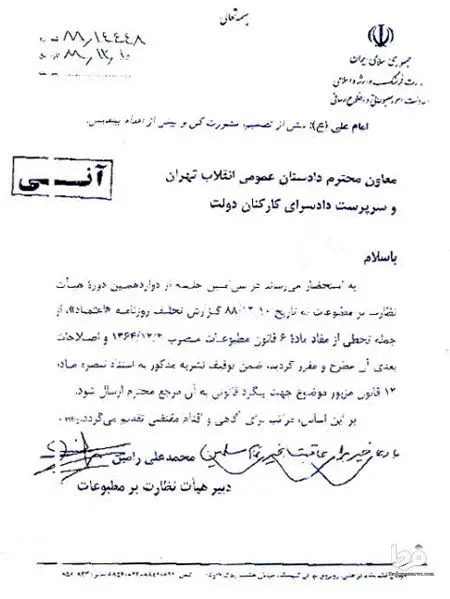 بسمه تعالی
۸۸/۱۴۴۴۸
جمهوری اسلامی ایران
وزارت فرهنگ و ارشاد اسلامی
معاونت امور مطبوعاتی و اطلاع رسانی
امام علی (ع): پیش از تصمیم، مشورت کن و پیش از اقدام بیندیش.
آنـــی
معاون محترم دادستان عمومی انقلاب تهران
و سرپرست دادسرای کارکنان دولت
باسلام
به استحضار می‌رساند در سی‌امین جلسه از دوازدهمین دورهٔ هیأت
نظارت بر مطبوعات به تاریخ گزارش تخلف روزنامه «اعتماد»، از
جمله تخطی از مفاد مادهٔ ۶ قانون مطبوعات مصوب ۱۳۶۴/۱۲/۲ و اصلاحات
بعدی آن مطرح و مقرر گردید، ضمن توقیف نشریه مذکور به استناد تبصره ماده
۱۲ قانون مزبور موضوع جهت پیگرد قانونی به آن مرجع محترم ارسال شود.
بر این اساس، مراتب برای آگاهی و اقدام مقتضی تقدیم می‌گردد.
با دعای خیر برای عاقبت بخیری تمام مسلمین
محمدعلی رامین
دبیر هیأت نظارت بر مطبوعات
فردا